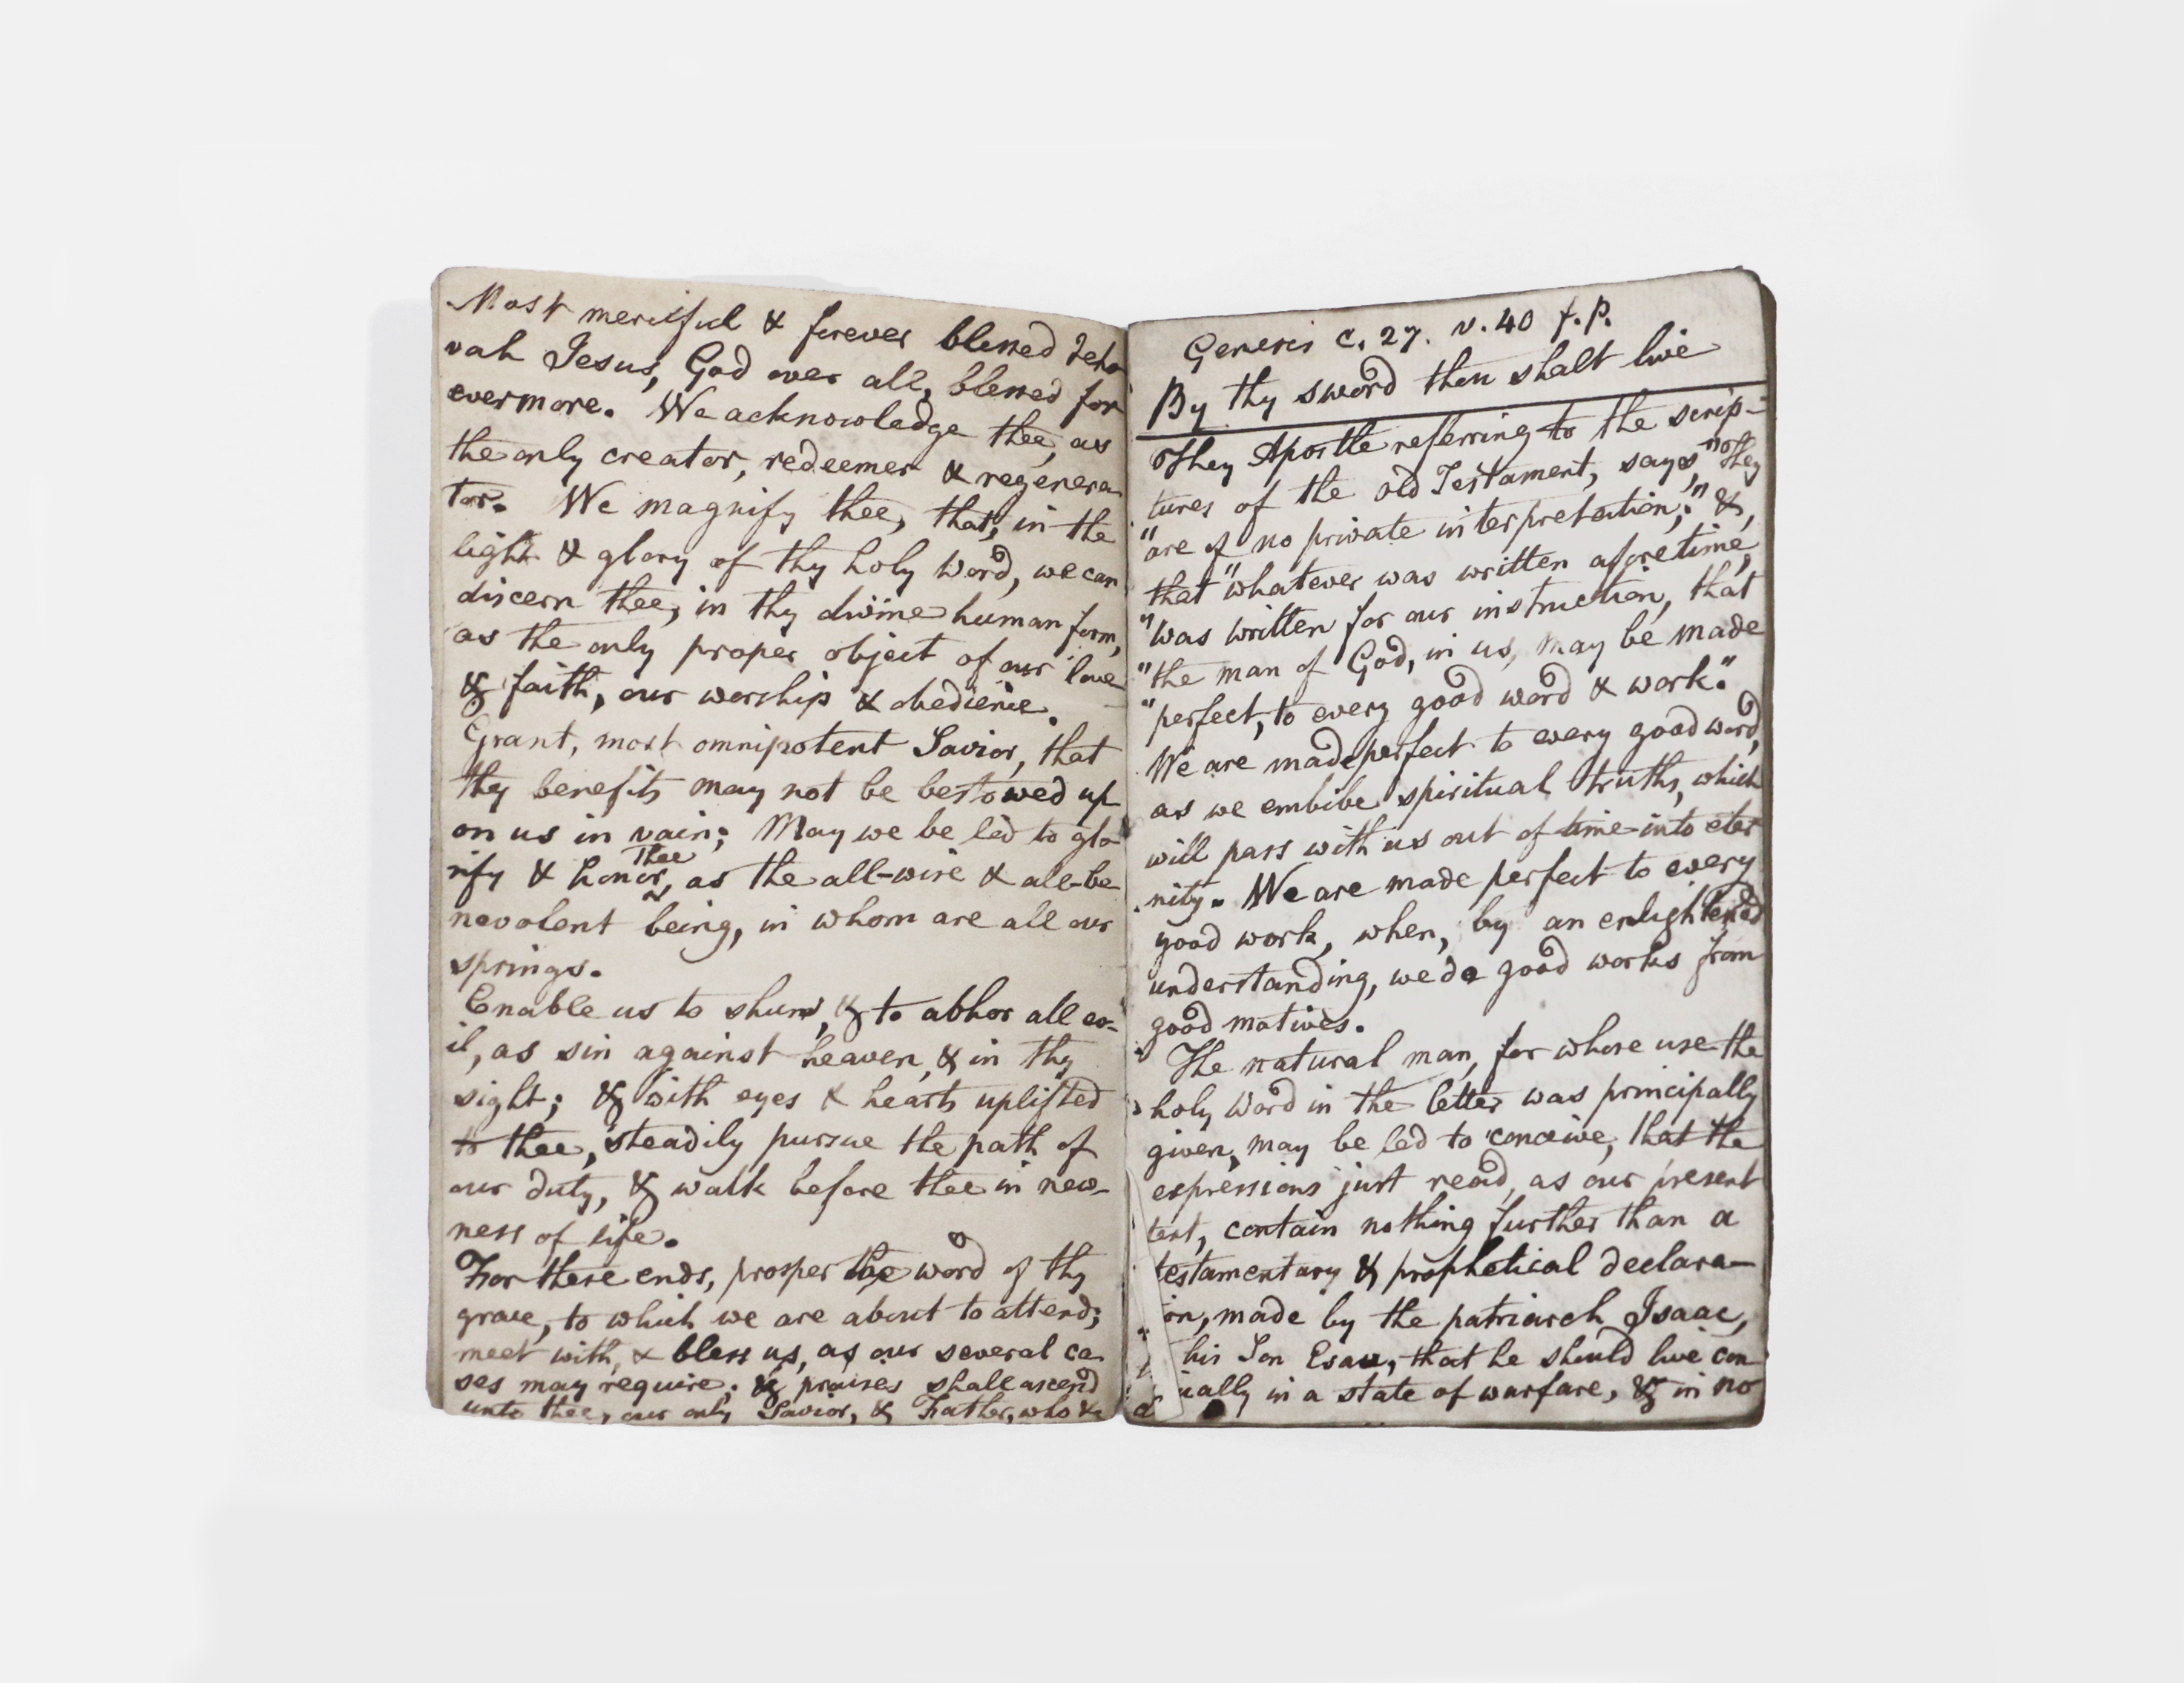 Most merciful & forever blessed Jeho
vah Jesus, God over all, blessed for
evermore. We acknowledge thee, as
the only creator, redeemer & regenera
tor. We magnify thee, that, in the
light & glory of thy holy Word, we can
discern thee, in thy divine human form,
as the only proper object of our love
& faith, our worship & obedience.
Grant, most omnipotent Savior, that
thy benefits may not be bestowed up
on us in vain; May we be led to glo
rify & honor thee, as the all-wise & all-be
nevolent being, in whom are all our
springs.
Enable us to shun, & to abhor all ev-
il, as sin against heaven, & in thy
sight; & with eyes & hearts uplifted
to thee, steadily pursue the path of
our duty, & walk before thee in new-
ness of life.
For these ends, prosper the word of thy
grace, to which we are about to attend;
meet with, & bless us, as our several ca
ses may require; & praises shall ascend
unto thee, our only Savior, & Father, who &c
Genesis c. 27. v. 40 f.p.
By thy sword thou shalt live
They Apostle referring to the scrip-
tures of the old Testament, says, "They
"are of no private interpretation;" &,
that "whatever was written aforetime,
"was written for our instruction, that
"the man of God, in us, may be made
"perfect, to every good word & work."
We are made perfect to every good word,
as we embibe spiritual truths, which
will pass with us out of time into eter
nity. We are made perfect to every
good work, when, by an enlightened
understanding, we do good works from
good motives.
The natural man, for whose use the
holy Word in the letter was principally
given, may be led to conceive, that the
expressions just read, as our present
text, contain nothing further than a
testamentary & prophetical declara-
ion, made by the patriarch Isaac,
his Son Esau, that he should live con
ually in a state of warfare, & in no